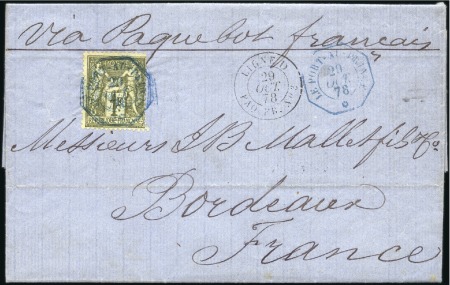 via Paquebot français
LIGNE D
PAQ. FR. N° 2
29
OCT
78
LE PORT-AU-PRINCE
29
OCT
78
Messieurs J B Mallet fils & Co
Bordeaux
France